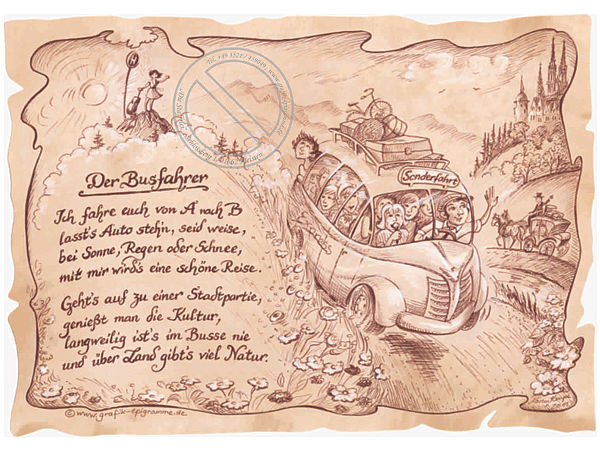 H
Der Busfahrer
Ich fahre euch von A nach B
lasst's Auto steh'n, seid weise,
bei Sonne, Regen oder Schnee,
mit mir wird's eine schöne Reise.
Geht's auf zu einer Stadtpartie,
genießt man die Kultur,
langweilig ist's im Busse nie
und über Land gibt's viel Natur.
Sonderfahrt
©www.grafik-epigramme.de